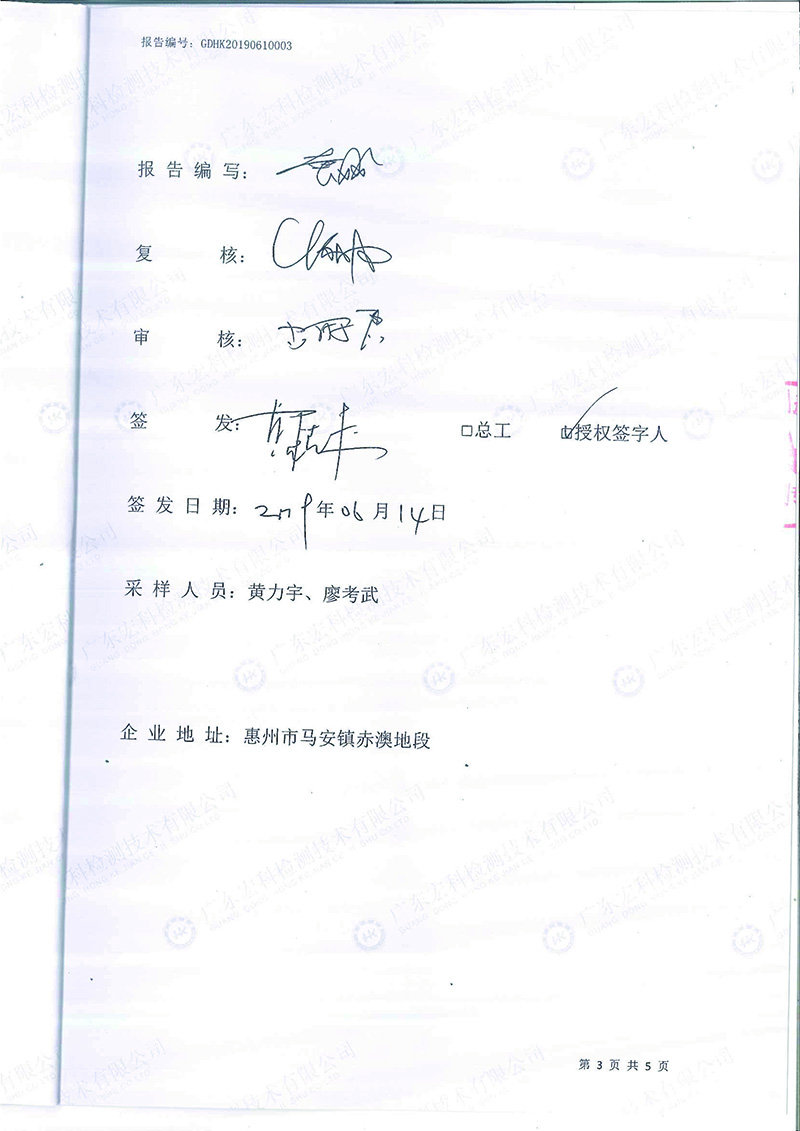 报告编号：GDHK20190610003
报 告 编 写：
复 核：
审 核：
签 发： □总工 ☑授权签字人
签 发 日 期：2019年06月14日
采 样 人 员：黄力宇、廖考武
企 业 地 址：惠州市马安镇赤澳地段
第 3 页 共 5 页
广东宏科检测技术有限公司